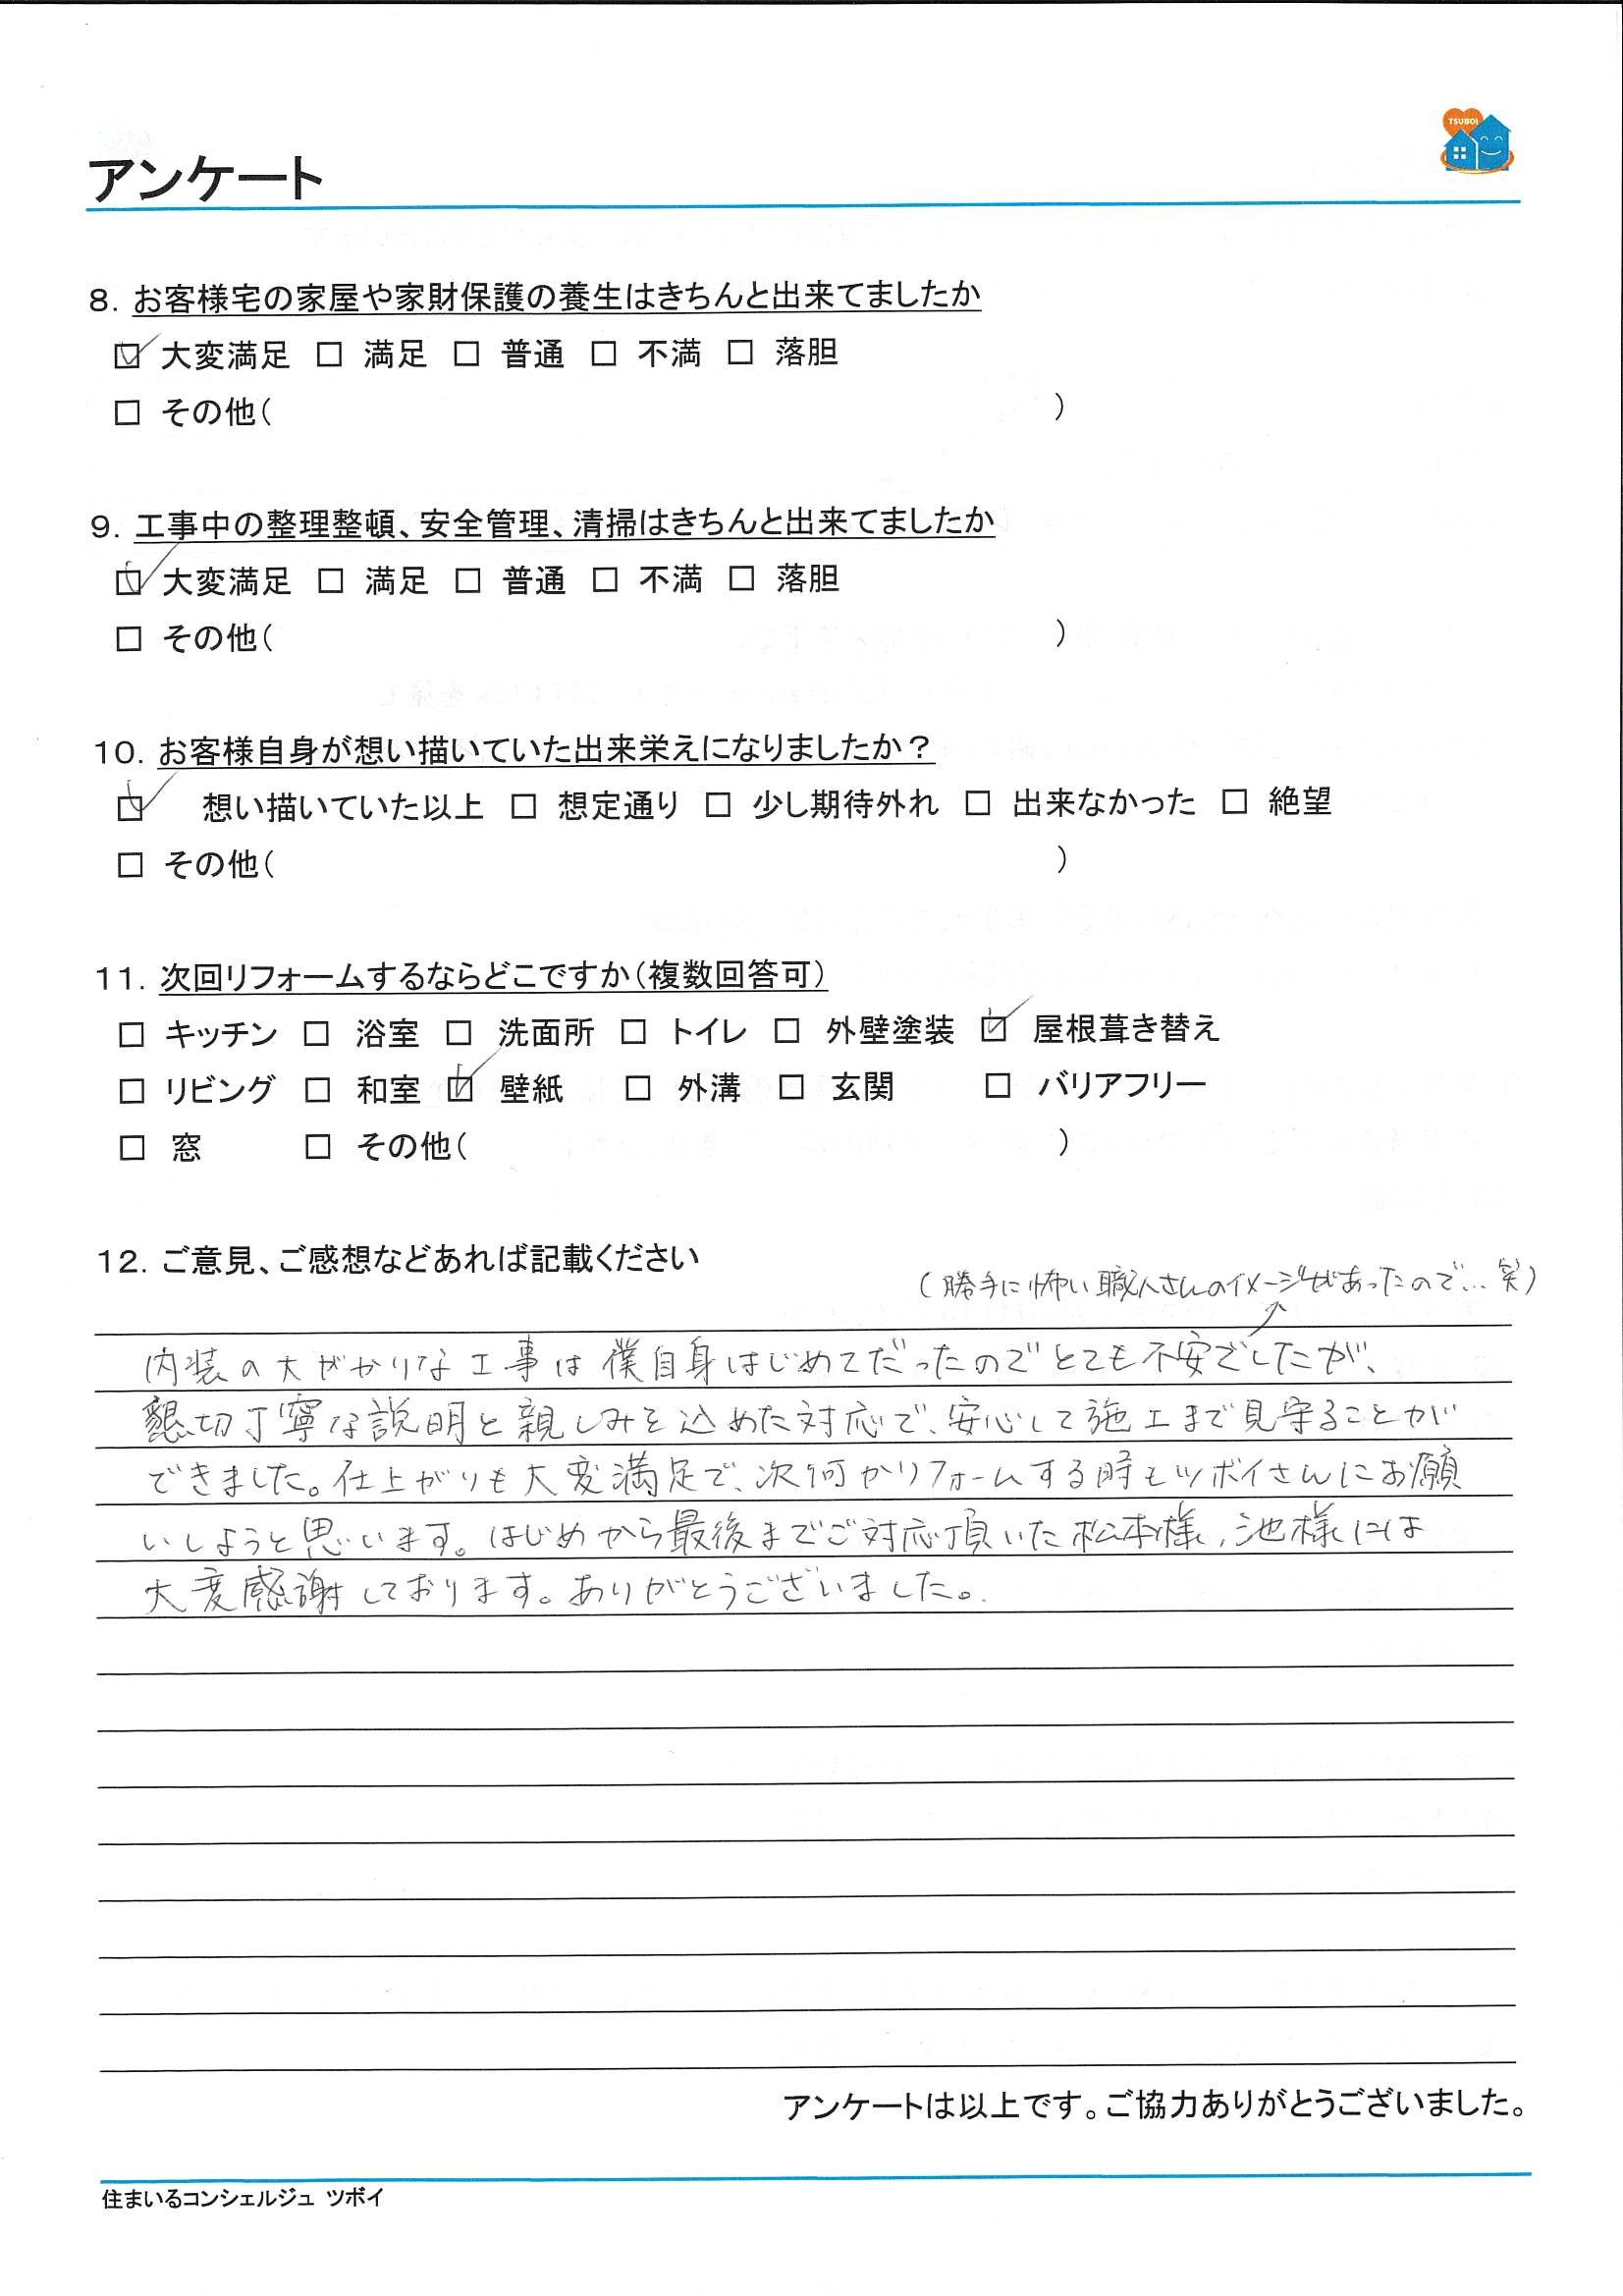 TSUBOI
アンケート
8. お客様宅の家屋や家財保護の養生はきちんと出来てましたか
☑ 大変満足 □ 満足 □ 普通 □ 不満 □ 落胆
□ その他( )
9. 工事中の整理整頓、安全管理、清掃はきちんと出来てましたか
☑ 大変満足 □ 満足 □ 普通 □ 不満 □ 落胆
□ その他( )
10. お客様自身が想い描いていた出来栄えになりましたか?
☑ 想い描いていた以上 □ 想定通り □ 少し期待外れ □ 出来なかった □ 絶望
□ その他( )
11. 次回リフォームするならどこですか(複数回答可)
□ キッチン □ 浴室 □ 洗面所 □ トイレ □ 外壁塗装 ☑ 屋根葺き替え
□ リビング □ 和室 ☑ 壁紙 □ 外溝 □ 玄関 □ バリアフリー
□ 窓 □ その他( )
12. ご意見、ご感想などあれば記載ください
(勝手に怖い職人さんのイメージがあったので… 笑)
内装の大がかりな工事は僕自身はじめてだったのでとても不安でしたが、
懇切丁寧な説明と親しみを込めた対応で、安心して施工まで見守ることが
できました。仕上がりも大変満足で、次何かリフォームする時もツボイさんにお願
いしようと思います。はじめから最後までご対応頂いた松本様、池様には
大変感謝しております。ありがとうございました。
アンケートは以上です。ご協力ありがとうございました。
住まいるコンシェルジュ ツボイ